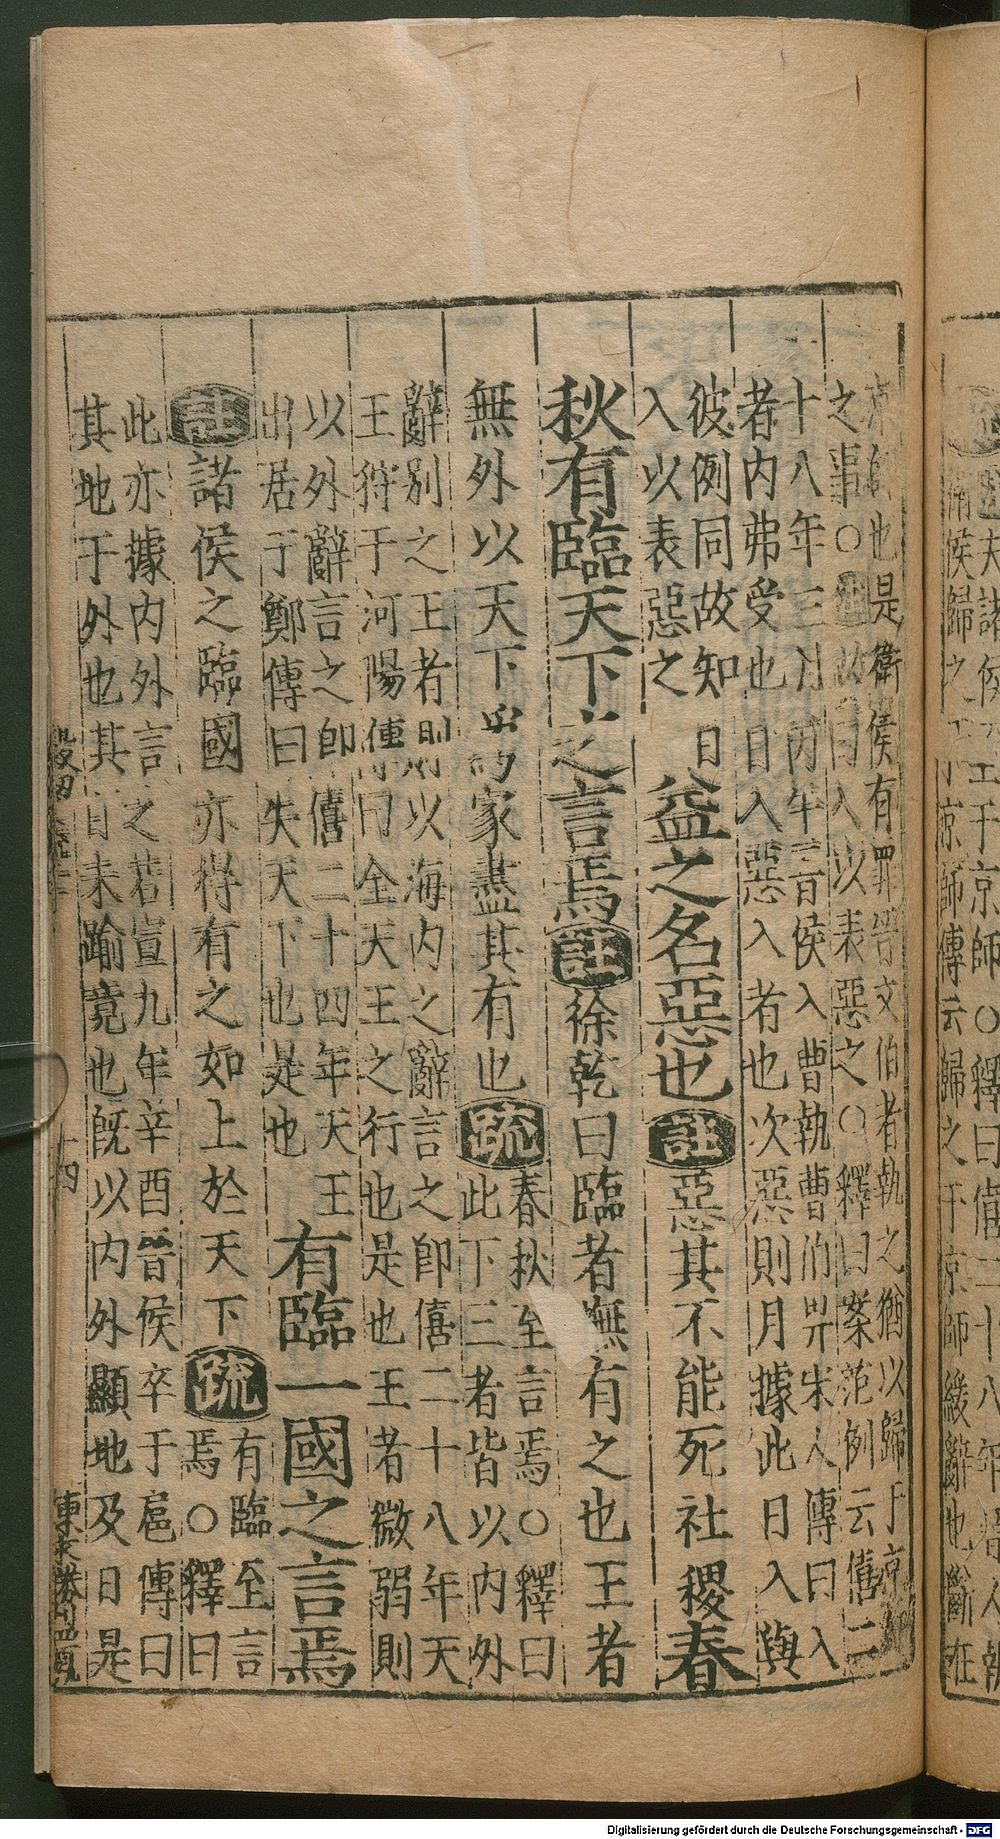 也是衛侯有罪晉文伯者執之猶以歸于京
之事○故曰入以表惡之○釋曰案范例云僖二
十八年三月丙午晉侯入曹執曹伯畀宋人傳曰入
者內弗受也日入惡入者也次惡則月據此日入與
彼例同故知日
入以表惡之
益之名惡也註惡其不能死社稷春
秋有臨天下之言焉註徐乾曰臨者撫有之也王者
無外以天下為家盡其有也疏春秋至言焉○釋曰
此下三者皆以內外
辭別之王者則以海內之辭言之即僖二十八年天
王狩于河陽傳曰全天王之行也是也王者微弱則
以外辭言之即僖二十四年天王
出居于鄭傳曰失天下也是也
有臨一國之言焉
註諸侯之臨國亦得有之如上於天下疏有臨至言
焉○釋曰
此亦據內外言之若宣九年辛酉晉侯卒于扈傳曰
其地于外也其日未踰竟也既以內外顯地及日是
十四
夫諸侯 于京師○釋曰僖二十八年晉人執
衛侯歸之于京師傳云歸之于京師緩辭也斷在
Digitalisierung gefördert durch die Deutsche Forschungsgemeinschaft - DFG